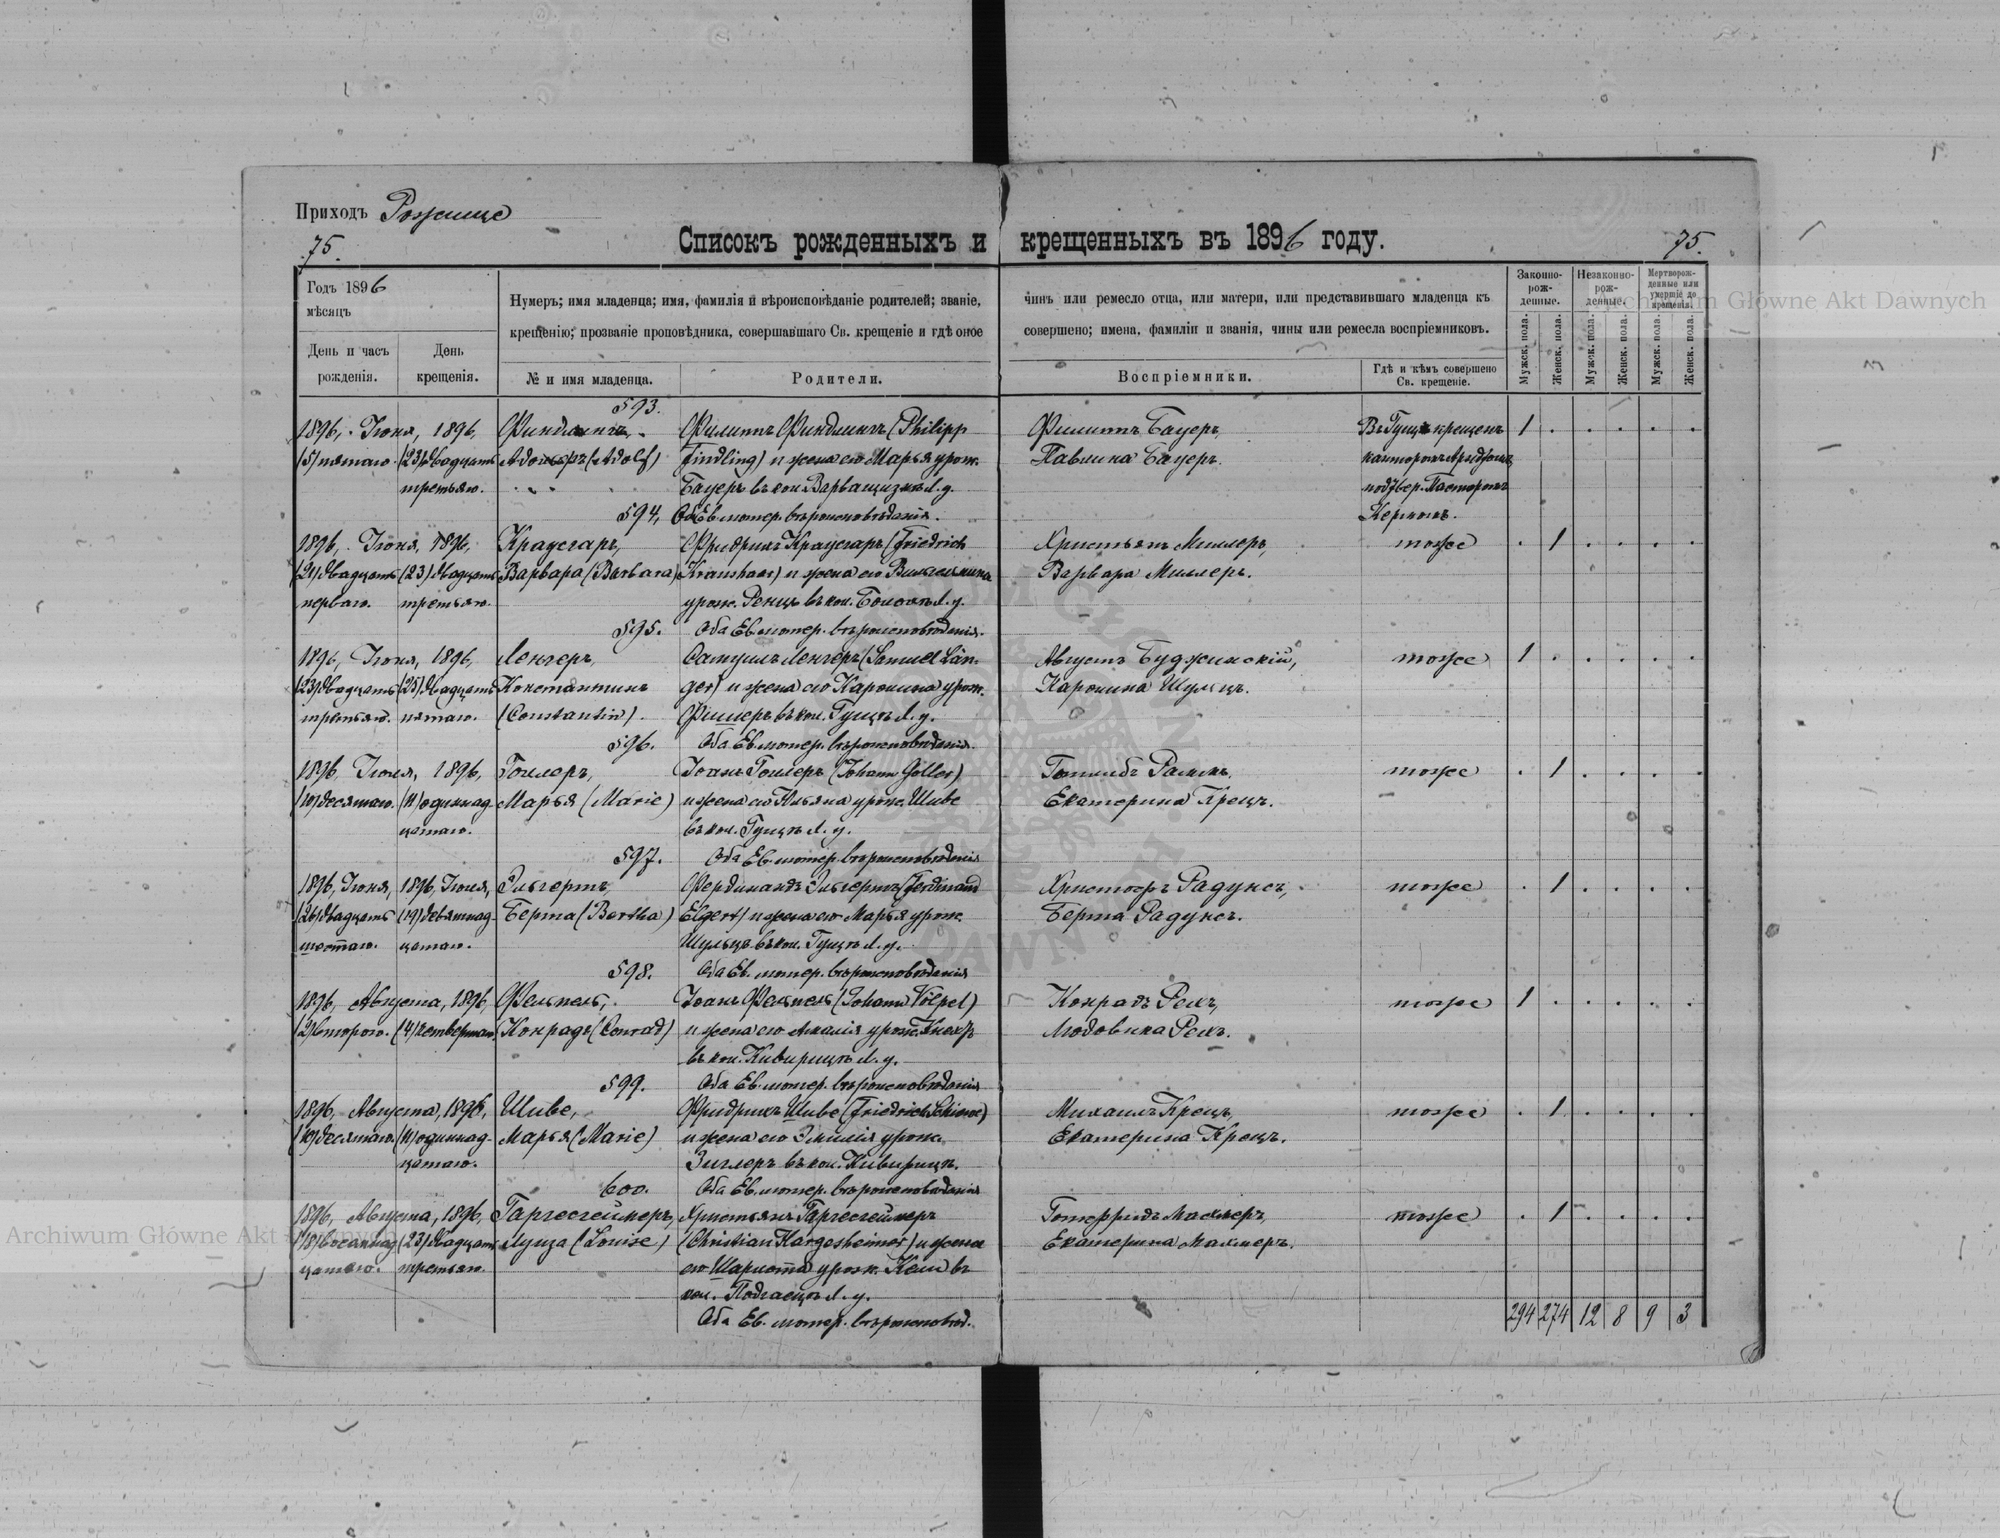 Приходъ Рожище
75.
Списокъ рожденныхъ и крещенныхъ въ 1896 году.
75.
Годъ 1896
мѣсяцъ
День и часъ рожденія.
День крещенія.
Нумеръ; имя младенца; имя, фамилія и вѣроисповѣданіе родителей; званіе,
крещенію; прозваніе проповѣдника, совершавшаго Св. крещеніе и гдѣ оное
№ и имя младенца.
Родители.
чинъ или ремесло отца, или матери, или представившаго младенца къ
совершено; имена, фамиліи и званія, чины или ремесла воспріемниковъ.
Воспріемники.
Гдѣ и кѣмъ совершено
Св. крещеніе.
Законно-
рож-
денные.
Незаконно-
рож-
денные.
Мертворож-
денные или
умершіе до
крещенія.
Мужск. пола.
Женск. пола.
Мужск. пола.
Женск. пола.
Мужск. пола.
Женск. пола.
593.
1896, Іюня, 1896, Финдлингъ, Филиппъ Финдлингъ (Philipp Филиппъ Бауеръ, Въ Гущѣ крещенъ 1 . . . . .
(5) пятаго. (23) двадцать Адольфъ (Adolf) Findling) и жена его Марья урож. Павлина Бауеръ. канторомъ
третьяго. Бауеръ въ кол. Л. у. подтвер. Пасторомъ
594, Оба Ев. лютер. вѣроисповѣданія. Керномъ.
1896, Іюня, 1896, Краусгаръ, Фридрихъ Краусгаръ (Friedrich Христьянъ Миллеръ, тоже . 1 . . . .
(21) двадцать (23) двадцать Варвара (Barbara) Kraushaar) и жена его Вильгельмина Варвара Миллеръ.
перваго. третьяго. урож. Ренцъ въ кол. Л. у.
595. Оба Ев. лютер. вѣроисповѣданія.
1896, Іюня, 1896, Ленгеръ, Самуилъ Ленгеръ (Samuel Län- Августъ Буджинскій, тоже 1 . . . . .
(23) двадцать (25) двадцать Константинъ ger) и жена его Каролина урож. Каролина Шульцъ.
третьяго. пятаго. (Constantin). Фишеръ въ кол. Гущѣ Л. у.
596. Оба Ев. лютер. вѣроисповѣданія.
1896 Іюля, 1896, Голлеръ, Іоанъ Голлеръ (Johann Göller) Готлибъ тоже . 1 . . . .
(10) десятаго. (11) одиннад- Марья (Marie) и жена его Юльяна урож. Шиве Екатерина Крецъ.
цатаго. въ кол. Гущѣ Л. у.
597. Оба Ев. лютер. вѣроисповѣданія
1896, Іюня, 1896, Іюля, Эльгертъ, Фердинандъ Эльгертъ (Ferdinand Христофъ Радунсъ, тоже . 1 . . . .
(26) двадцать (19) девятнад- Берта (Bertha) Elgert) и жена его Марья урож. Берта Радунсъ.
шестаго. цатаго. Шульцъ въ кол. Гущѣ Л. у.
598. Оба Ев. лютер. вѣроисповѣданія
1896, Августа, 1896, Фельпель, Іоанъ Фельпель (Johann Völpel) Конрадъ Релъ, тоже 1 . . . . .
(2) второго. (4) четвертаго. Конрадъ (Conrad) и жена его Амалія урож. Людовика Релъ.
въ кол. Киверицѣ Л. у.
599. Оба Ев. лютер. вѣроисповѣданія
1896, Августа, 1896, Шиве, Фридрихъ Шиве (Friedrich Schiewe) Михаилъ Крецъ, тоже . 1 . . . .
(10) десятаго. (11) одиннад- Марья (Marie) и жена его Эмилія урож. Екатерина Крецъ.
цатаго. Зиглеръ въ кол. Киверицѣ.
600. Оба Ев. лютер. вѣроисповѣданія
1896, Августа, 1896, Гаргесгеймеръ, Христьянъ Гаргесгеймеръ Готфридъ Махмеръ, тоже . 1 . . . .
(18) восемнад- (23) двадцать Луиза (Louise) (Christian Hargesheimer) и жена Екатерина Махмеръ.
цатаго. третьяго. его Шарлотта урож. Кели въ
кол. Подгаецѣ Л. у.
Оба Ев. лютер. вѣроисповѣд.
294 274 12 8 9 3
Archiwum Główne Akt Dawnych
Archiwum Główne Akt Dawnych